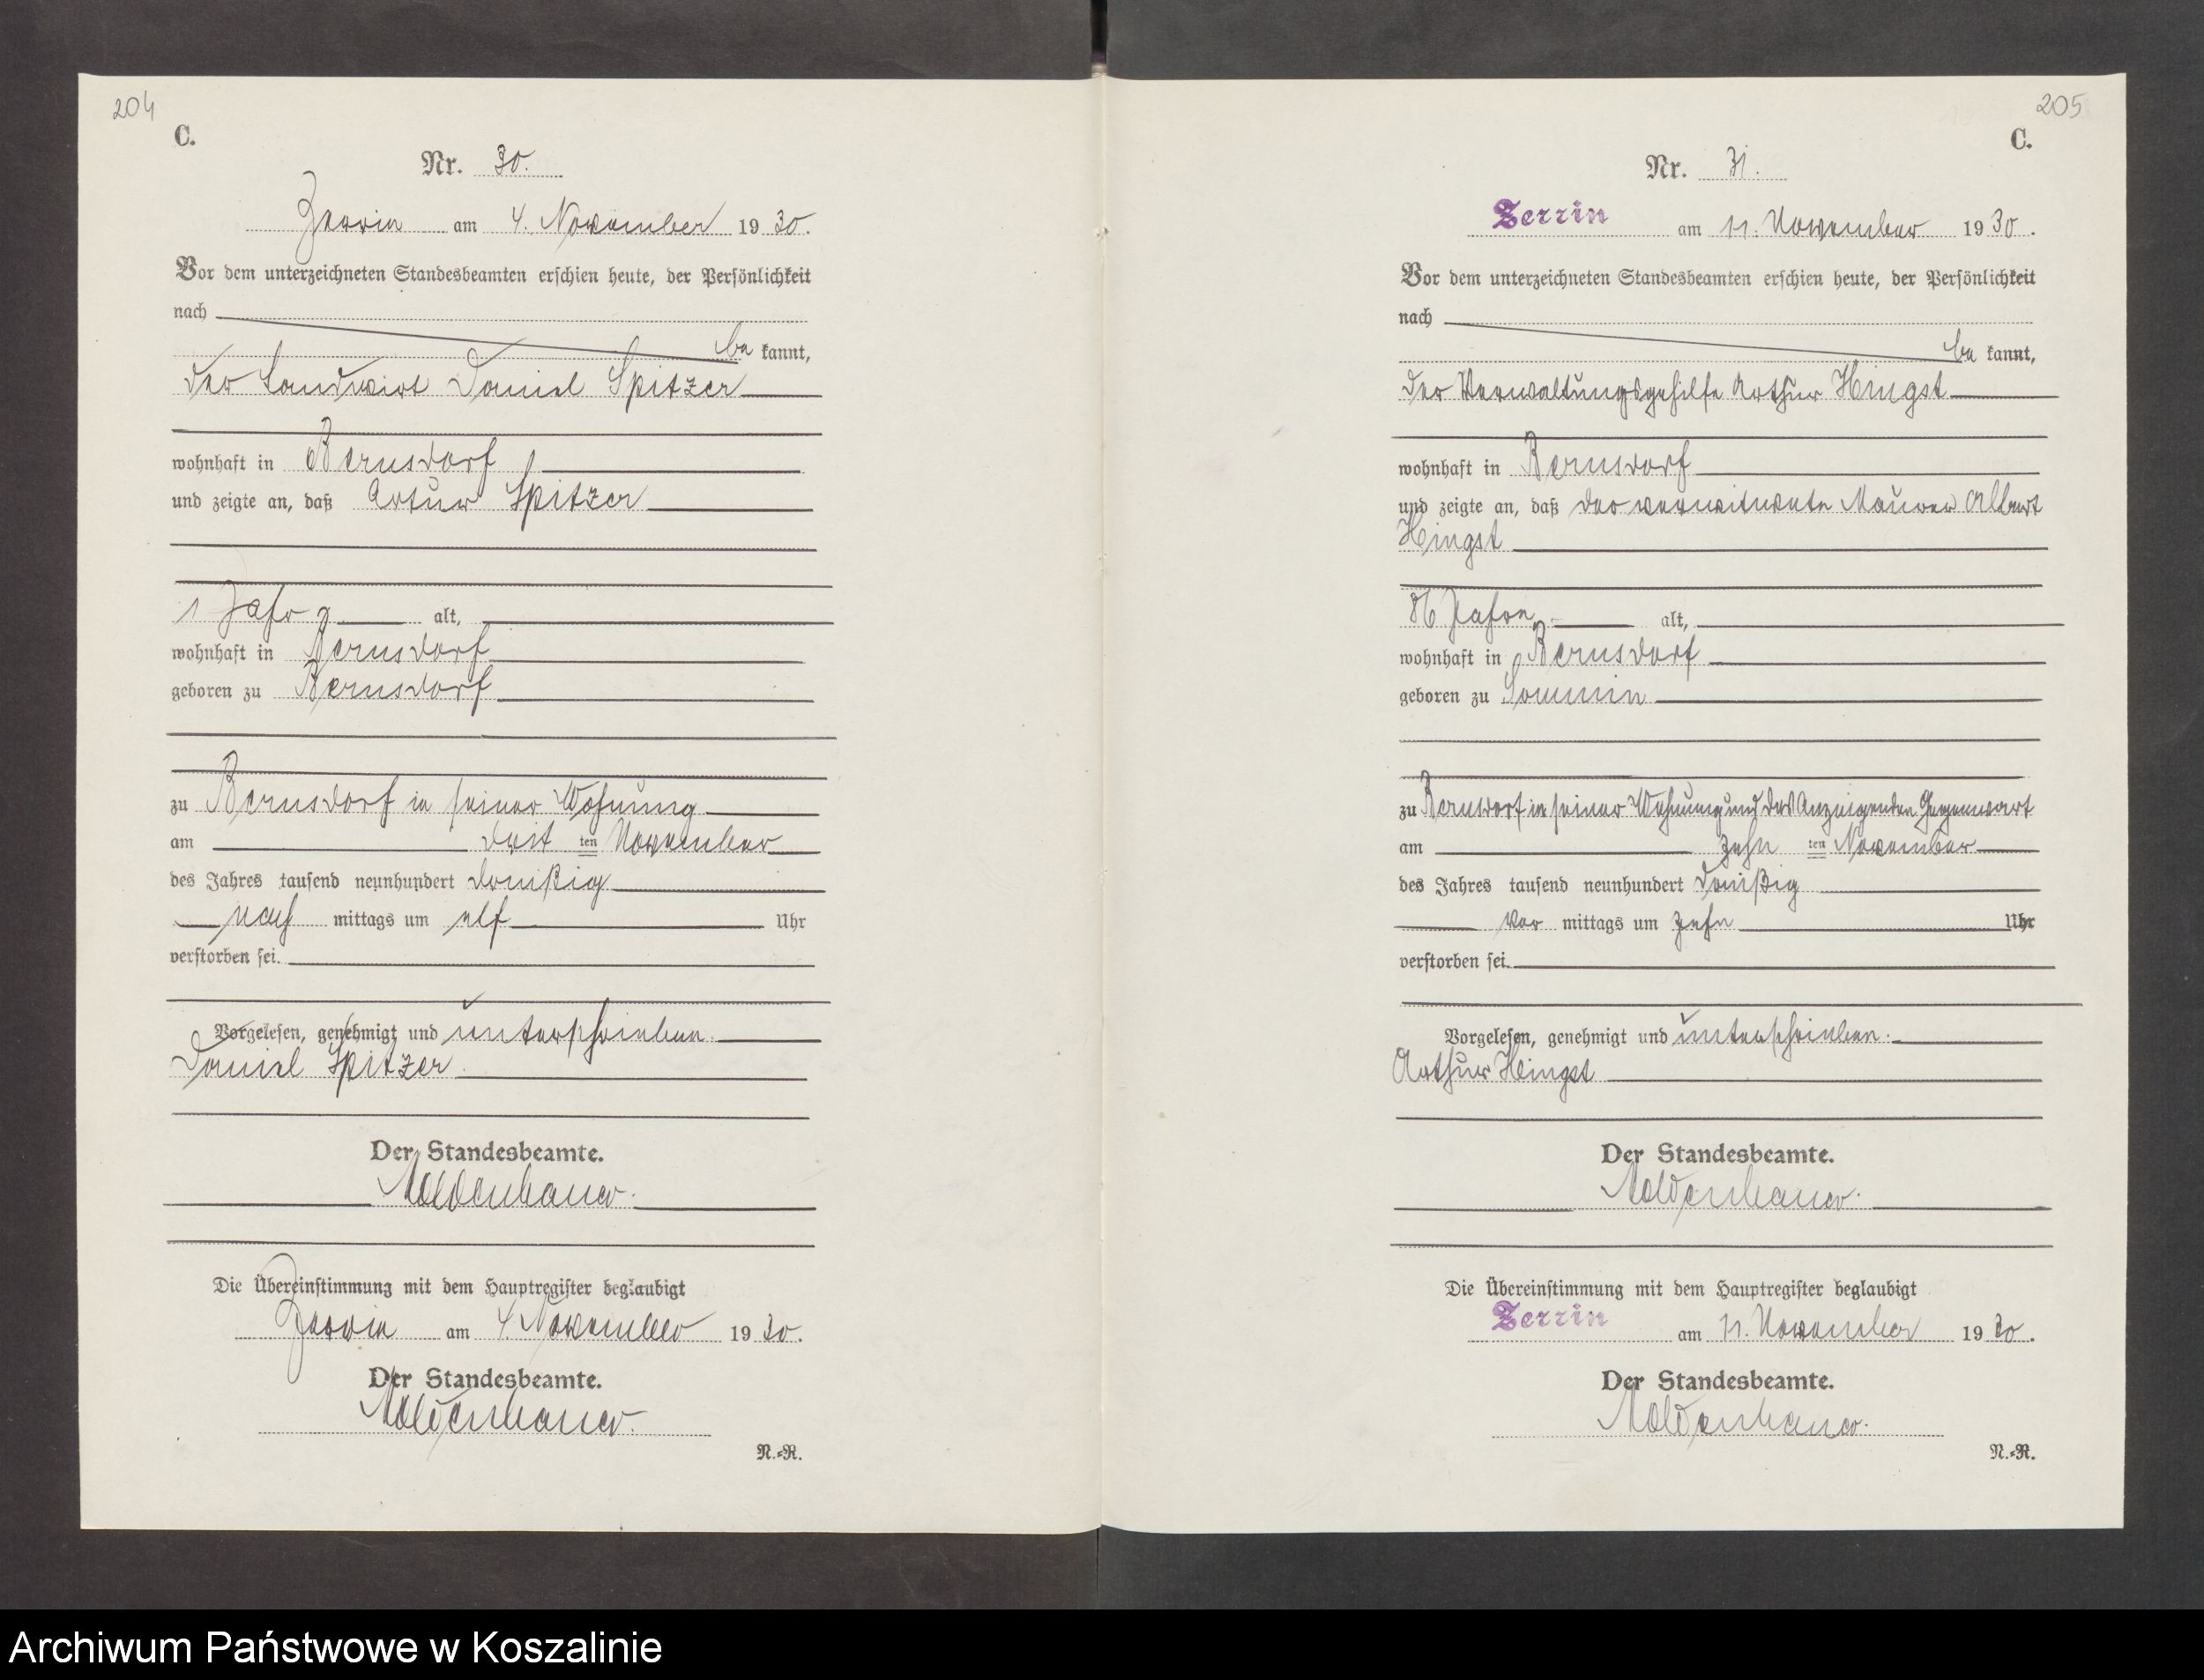 204
C.
Nr. 30.
Zerrin am 4. November 1930.
Vor dem unterzeichneten Standesbeamten erschien heute, der Persönlichkeit
nach
be kannt,
der Landwirt Daniel Spitzer
wohnhaft in Bernsdorf
und zeigte an, daß Artur Spitzer
1 Jahr alt,
wohnhaft in Bernsdorf
geboren zu Bernsdorf
zu Bernsdorf in seiner Wohnung
am drit ten November
des Jahres tausend neunhundert dreißig
nach mittags um elf Uhr
verstorben sei.
Vorgelesen, genehmigt und unterschrieben.
Daniel Spitzer.
Der Standesbeamte.
Moldenhauer.
Die Übereinstimmung mit dem Hauptregister beglaubigt
Zerrin am 4. November 1930.
Der Standesbeamte.
Moldenhauer.
N.-R.
205
C.
Nr. 31.
Zerrin am 11. November 1930.
Vor dem unterzeichneten Standesbeamten erschien heute, der Persönlichkeit
nach
be kannt,
der Verwaltungsgehilfe Arthur Hingst
wohnhaft in Bernsdorf
und zeigte an, daß der verwitwete Maurer Albert
Hingst
86 Jahre alt,
wohnhaft in Bernsdorf
geboren zu Sommin
zu Bernsdorf in seiner Wohnung und des Anzeigenden Gegenwart
am zehn ten November
des Jahres tausend neunhundert dreißig
vor mittags um zehn Uhr
verstorben sei.
Vorgelesen, genehmigt und unterschrieben.
Arthur Hingst
Der Standesbeamte.
Moldenhauer.
Die Übereinstimmung mit dem Hauptregister beglaubigt
Zerrin am 11. November 1930.
Der Standesbeamte.
Moldenhauer.
N.-R.
Archiwum Państwowe w Koszalinie